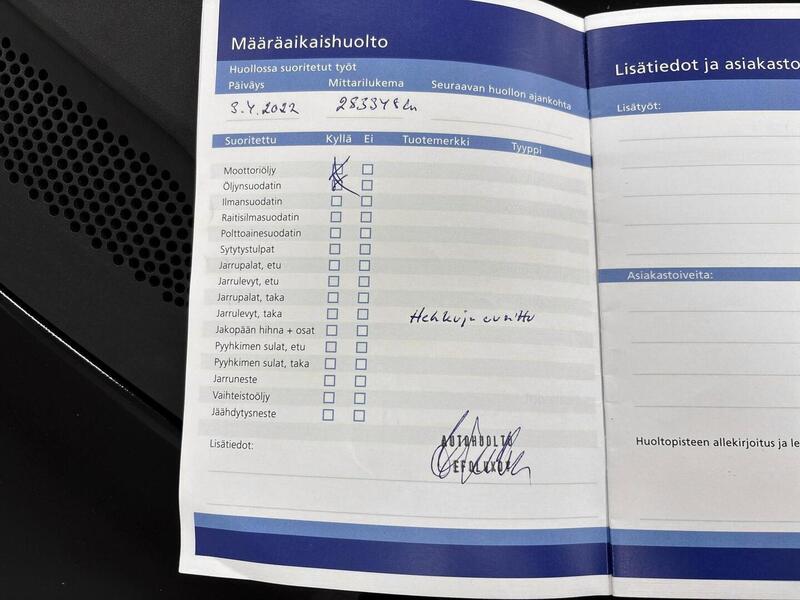 Määräaikaishuolto
Huollossa suoritetut työt
Päiväys Mittarilukema Seuraavan huollon ajankohta
3.4.2022 283348km
Suoritettu Kyllä Ei Tuotemerkki Tyyppi
Moottoriöljy
Öljynsuodatin
Ilmansuodatin
Raitisilmasuodatin
Polttoainesuodatin
Sytytystulpat
Jarrupalat, etu
Jarrulevyt, etu
Jarrupalat, taka
Jarrulevyt, taka
Hehkuja uusittu
Jakopään hihna + osat
Pyyhkimen sulat, etu
Pyyhkimen sulat, taka
Jarruneste
Vaihteistoöljy
Jäähdytysneste
Lisätiedot:
AUTOHUOLTO
EFOLUXOY
Lisätiedot ja asiakasto
Lisätyöt:
Asiakastoiveita:
Huoltopisteen allekirjoitus ja le